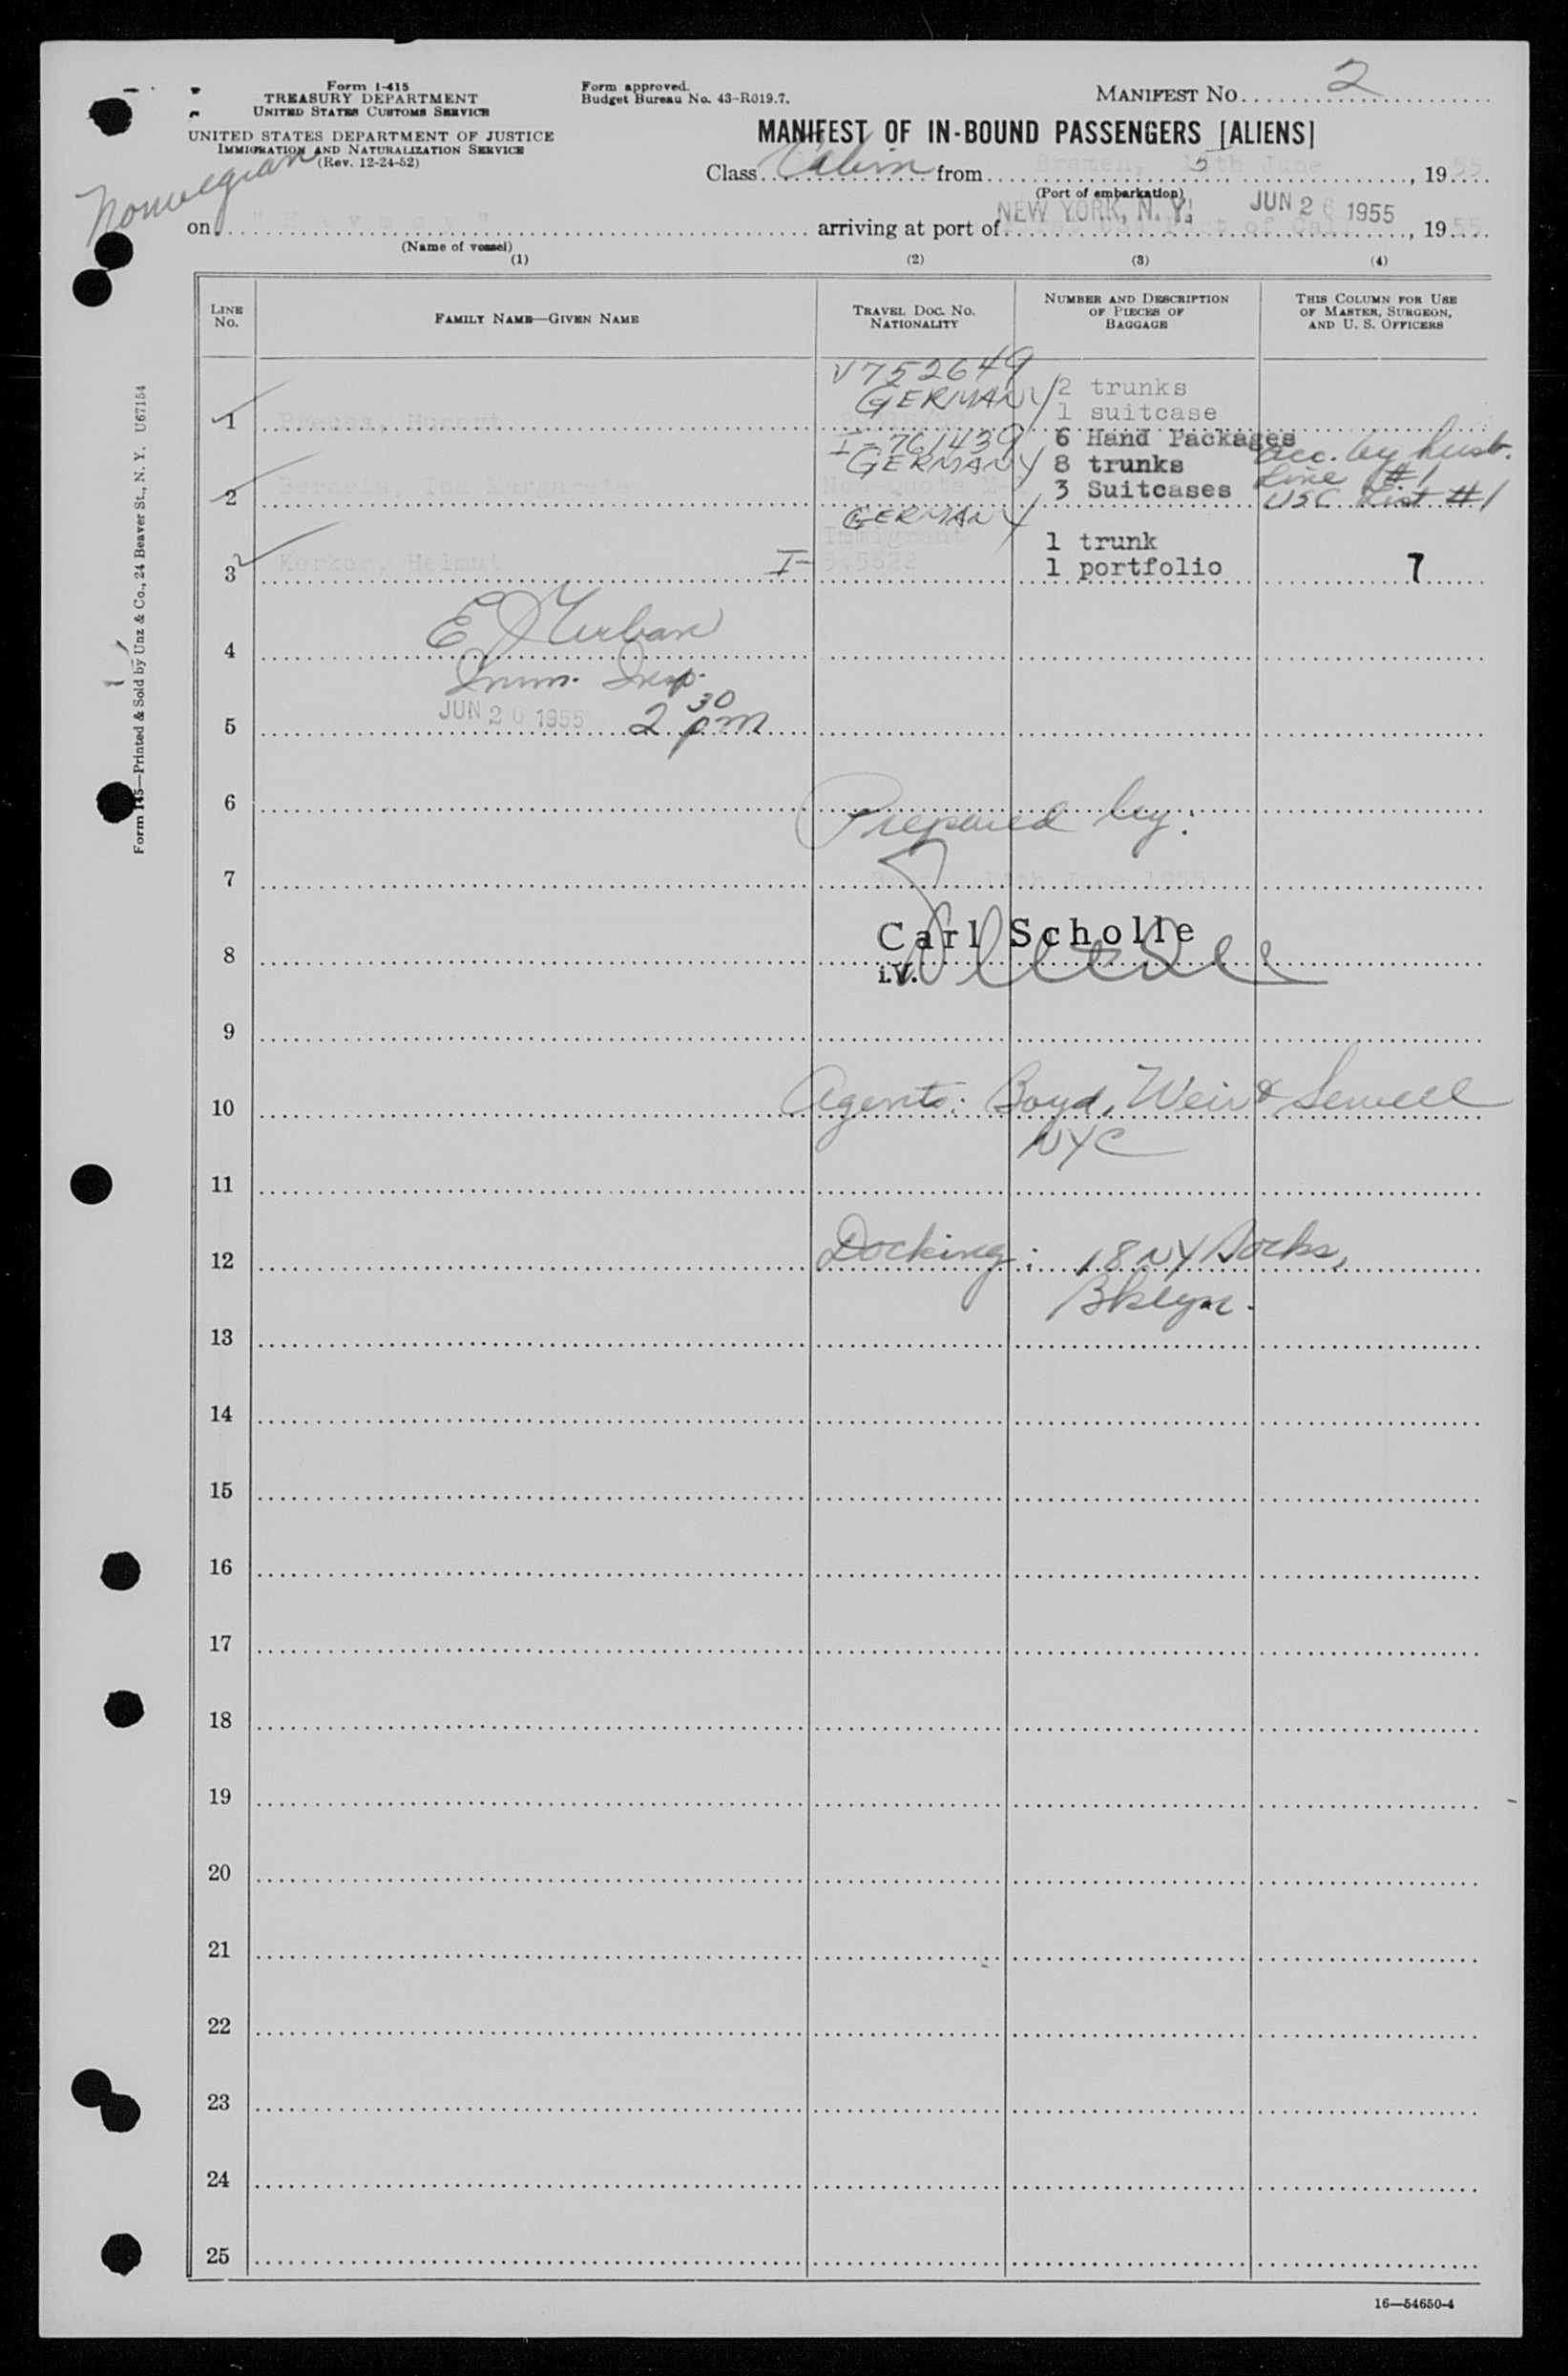 Form I-415
TREASURY DEPARTMENT
UNITED STATES CUSTOMS SERVICE
UNITED STATES DEPARTMENT OF JUSTICE
IMMIGRATION AND NATURALIZATION SERVICE
(Rev. 12-24-52)
Form approved.
Budget Bureau No. 43-R019.7.
MANIFEST No. 2
MANIFEST OF IN-BOUND PASSENGERS [ALIENS]
Norwegian
Class Cabin from Bremen, 15th June, 1955
(Port of embarkation)
on arriving at port of NEW YORK, N. Y. JUN 26 1955, 1955
(Name of vessel)
(1) (2) (3) (4)
LINE No. FAMILY NAME—GIVEN NAME TRAVEL DOC. NO. NATIONALITY NUMBER AND DESCRIPTION OF PIECES OF BAGGAGE THIS COLUMN FOR USE OF MASTER, SURGEON, AND U. S. OFFICERS
V752649
GERMANY 2 trunks
1 suitcase
1
I-761439 6 Hand Packages acc. by husb.
GERMANY 8 trunks Line #1
2 3 Suitcases USC List #1
GERMANY
Immigrant 1 trunk
3 Kerker, Helmut I- 1 portfolio 7
4 Imm. Insp.
5 JUN 26 1955 2 30 pm
6 Prepared by:
7
Carl Scholle
8 i.V.
9
10 Agents: Boyd, Weir & Sewell
NYC
11
12 Docking: 18 NY Docks,
Bklyn.
13
14
15
16
17
18
19
20
21
22
23
24
25
16—54650-4
Form 145—Printed & Sold by Unz & Co., 24 Beaver St., N. Y. U67154